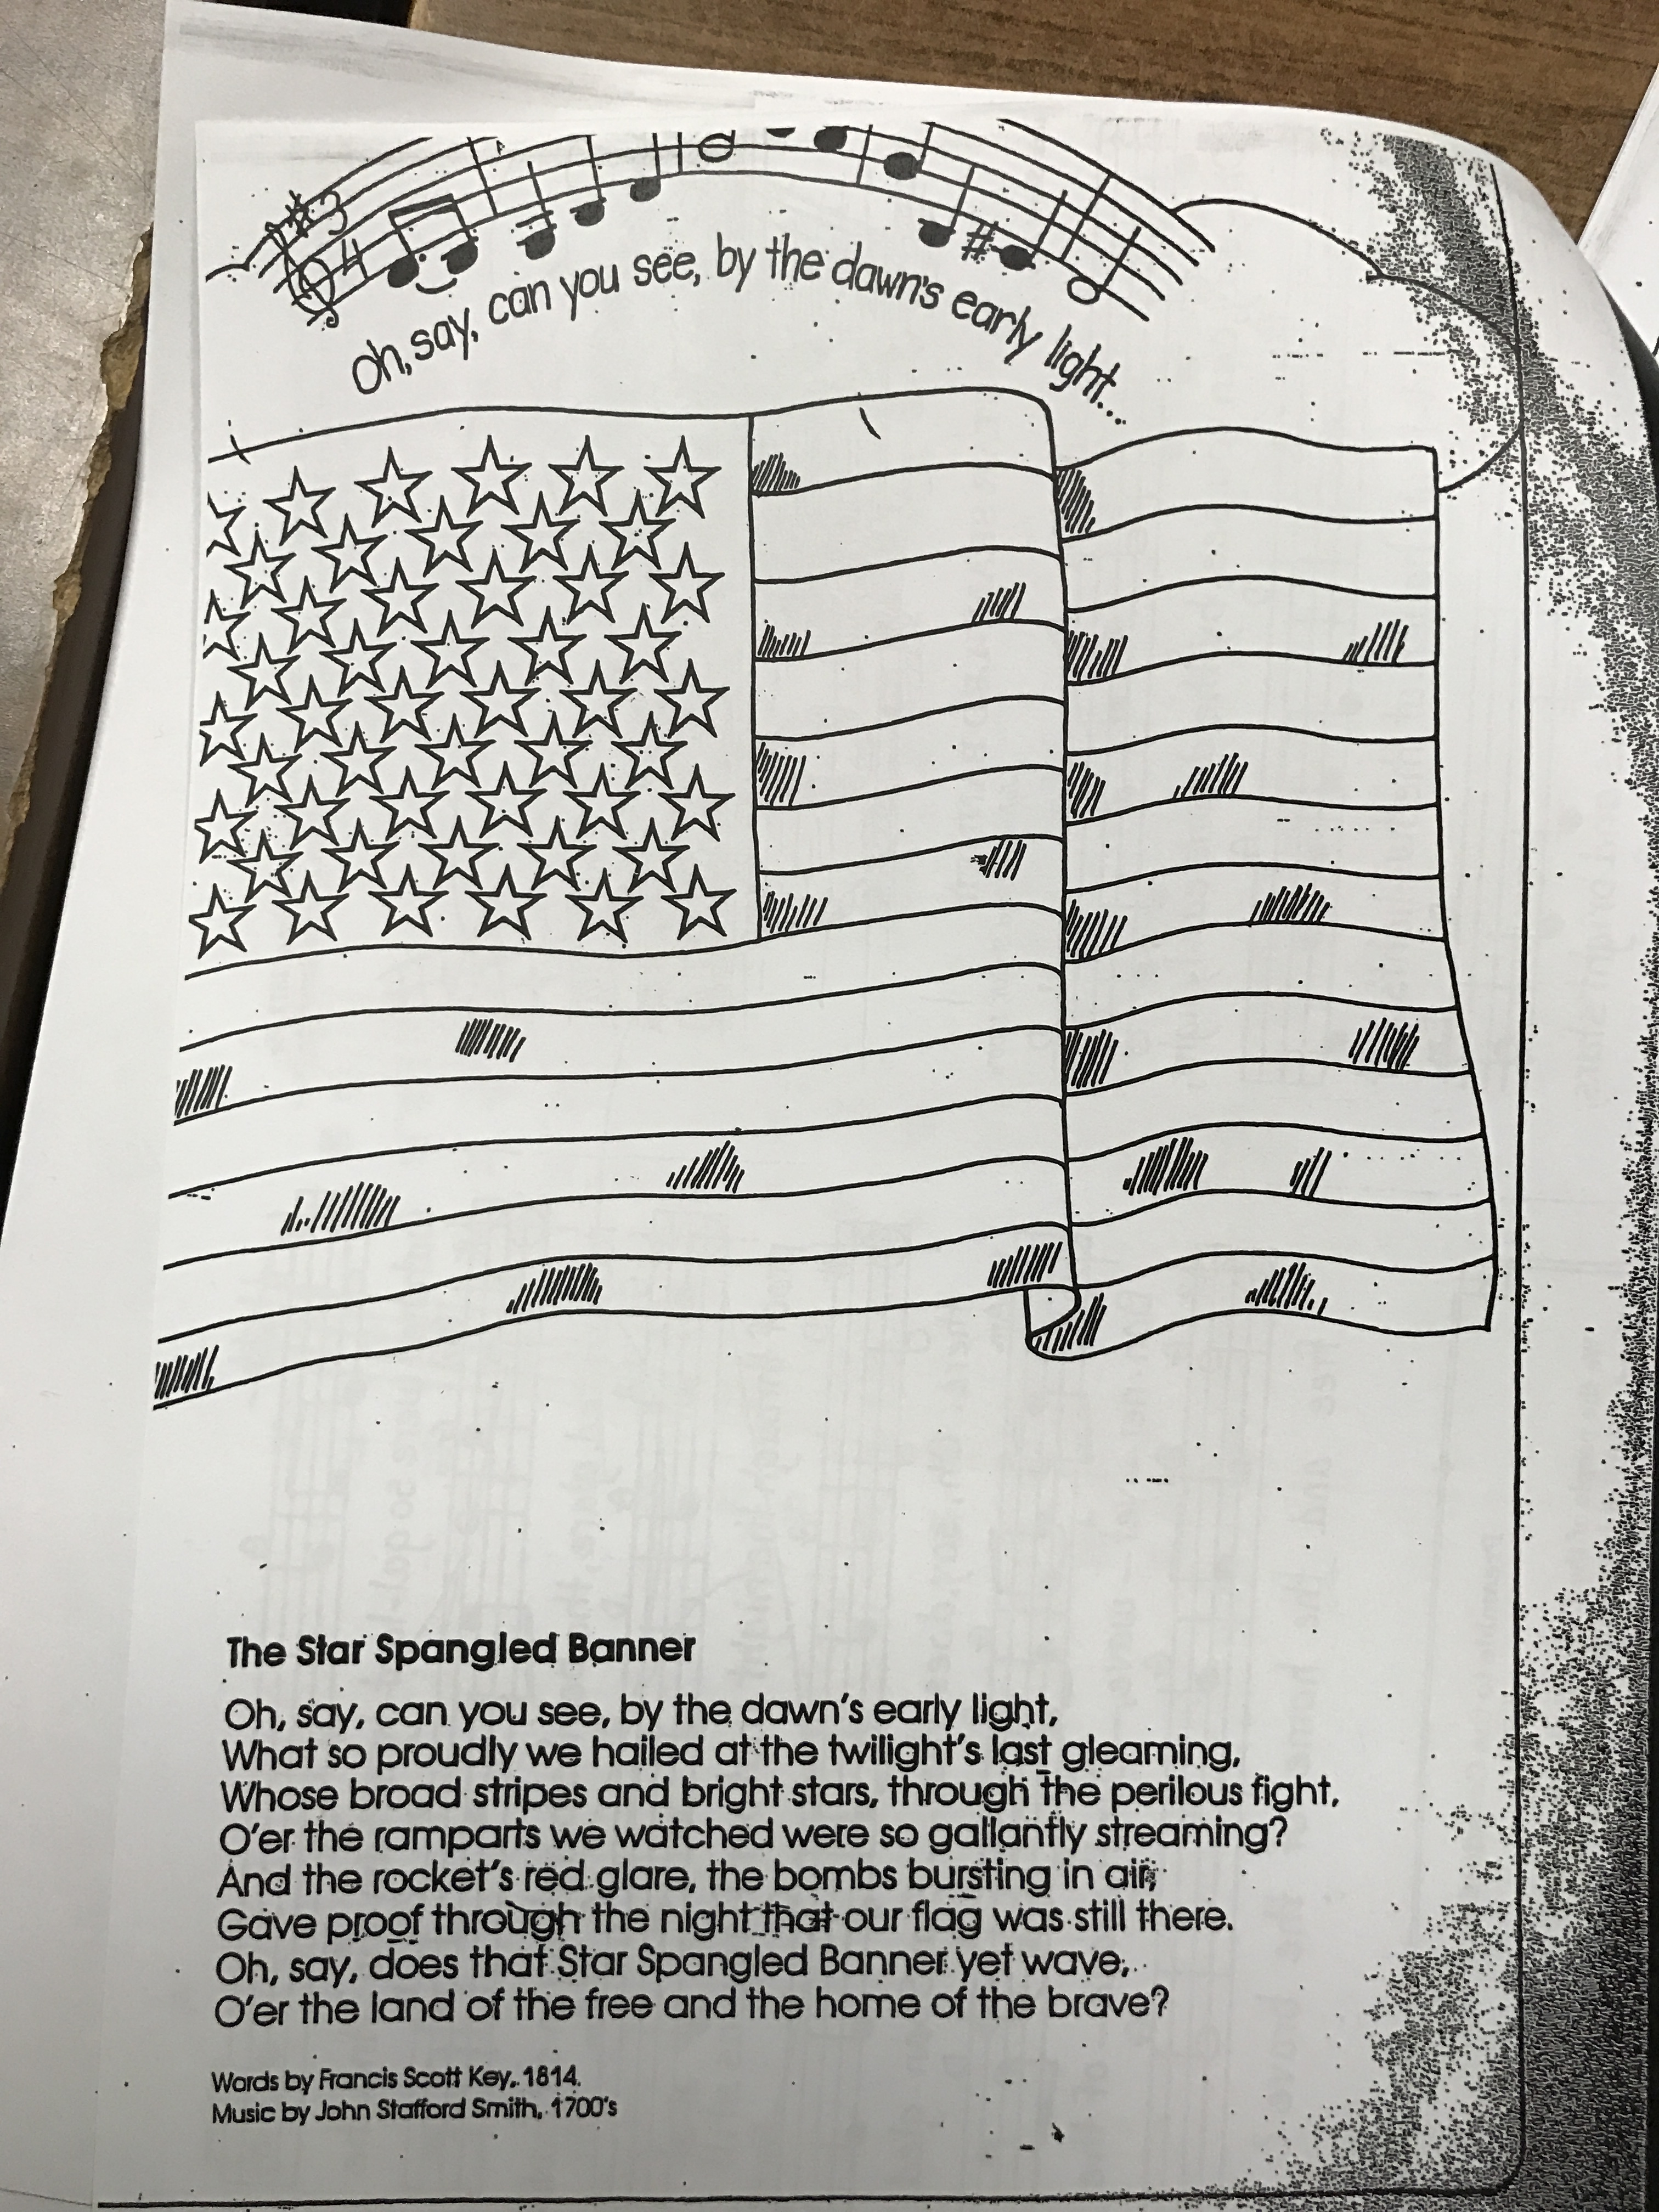 Oh, say, can you see, by the dawn's early light...
The Star Spangled Banner
Oh, say, can you see, by the dawn's early light,
What so proudly we hailed at the twilight's last gleaming,
Whose broad stripes and bright stars, through the perilous fight,
O'er the ramparts we watched were so gallantly streaming?
And the rocket's red glare, the bombs bursting in air,
Gave proof through the night that our flag was still there.
Oh, say, does that Star Spangled Banner yet wave,
O'er the land of the free and the home of the brave?
Words by Francis Scott Key, 1814.
Music by John Stafford Smith, 1700's